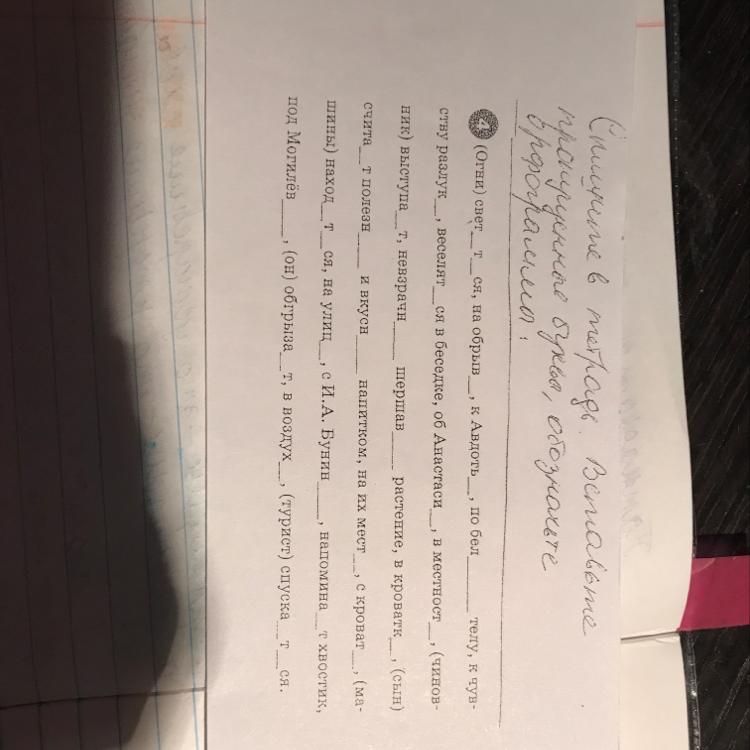 Спишите в тетрадь. Вставьте
пропущенные буквы, обозначьте
орфограммы:
4 (Огни) свет__т__ся, на обрыв__, к Авдоть__, по бел______ телу, к чув-
ству разлук__, веселят__ся в беседке, об Анастаси__, в местност__, (чинов-
ник) выступа__т, невзрачн____ шершав____ растение, в кроватк__, (сын)
счита__т полезн____ и вкусн____ напитком, на их мест__, с кроват__, (ма-
шины) наход__т__ся, на улиц__, с И.А. Бунин____, напомина__т хвостик,
под Могилёв____, (он) обгрыза__т, в воздух__, (турист) спуска__т__ся.